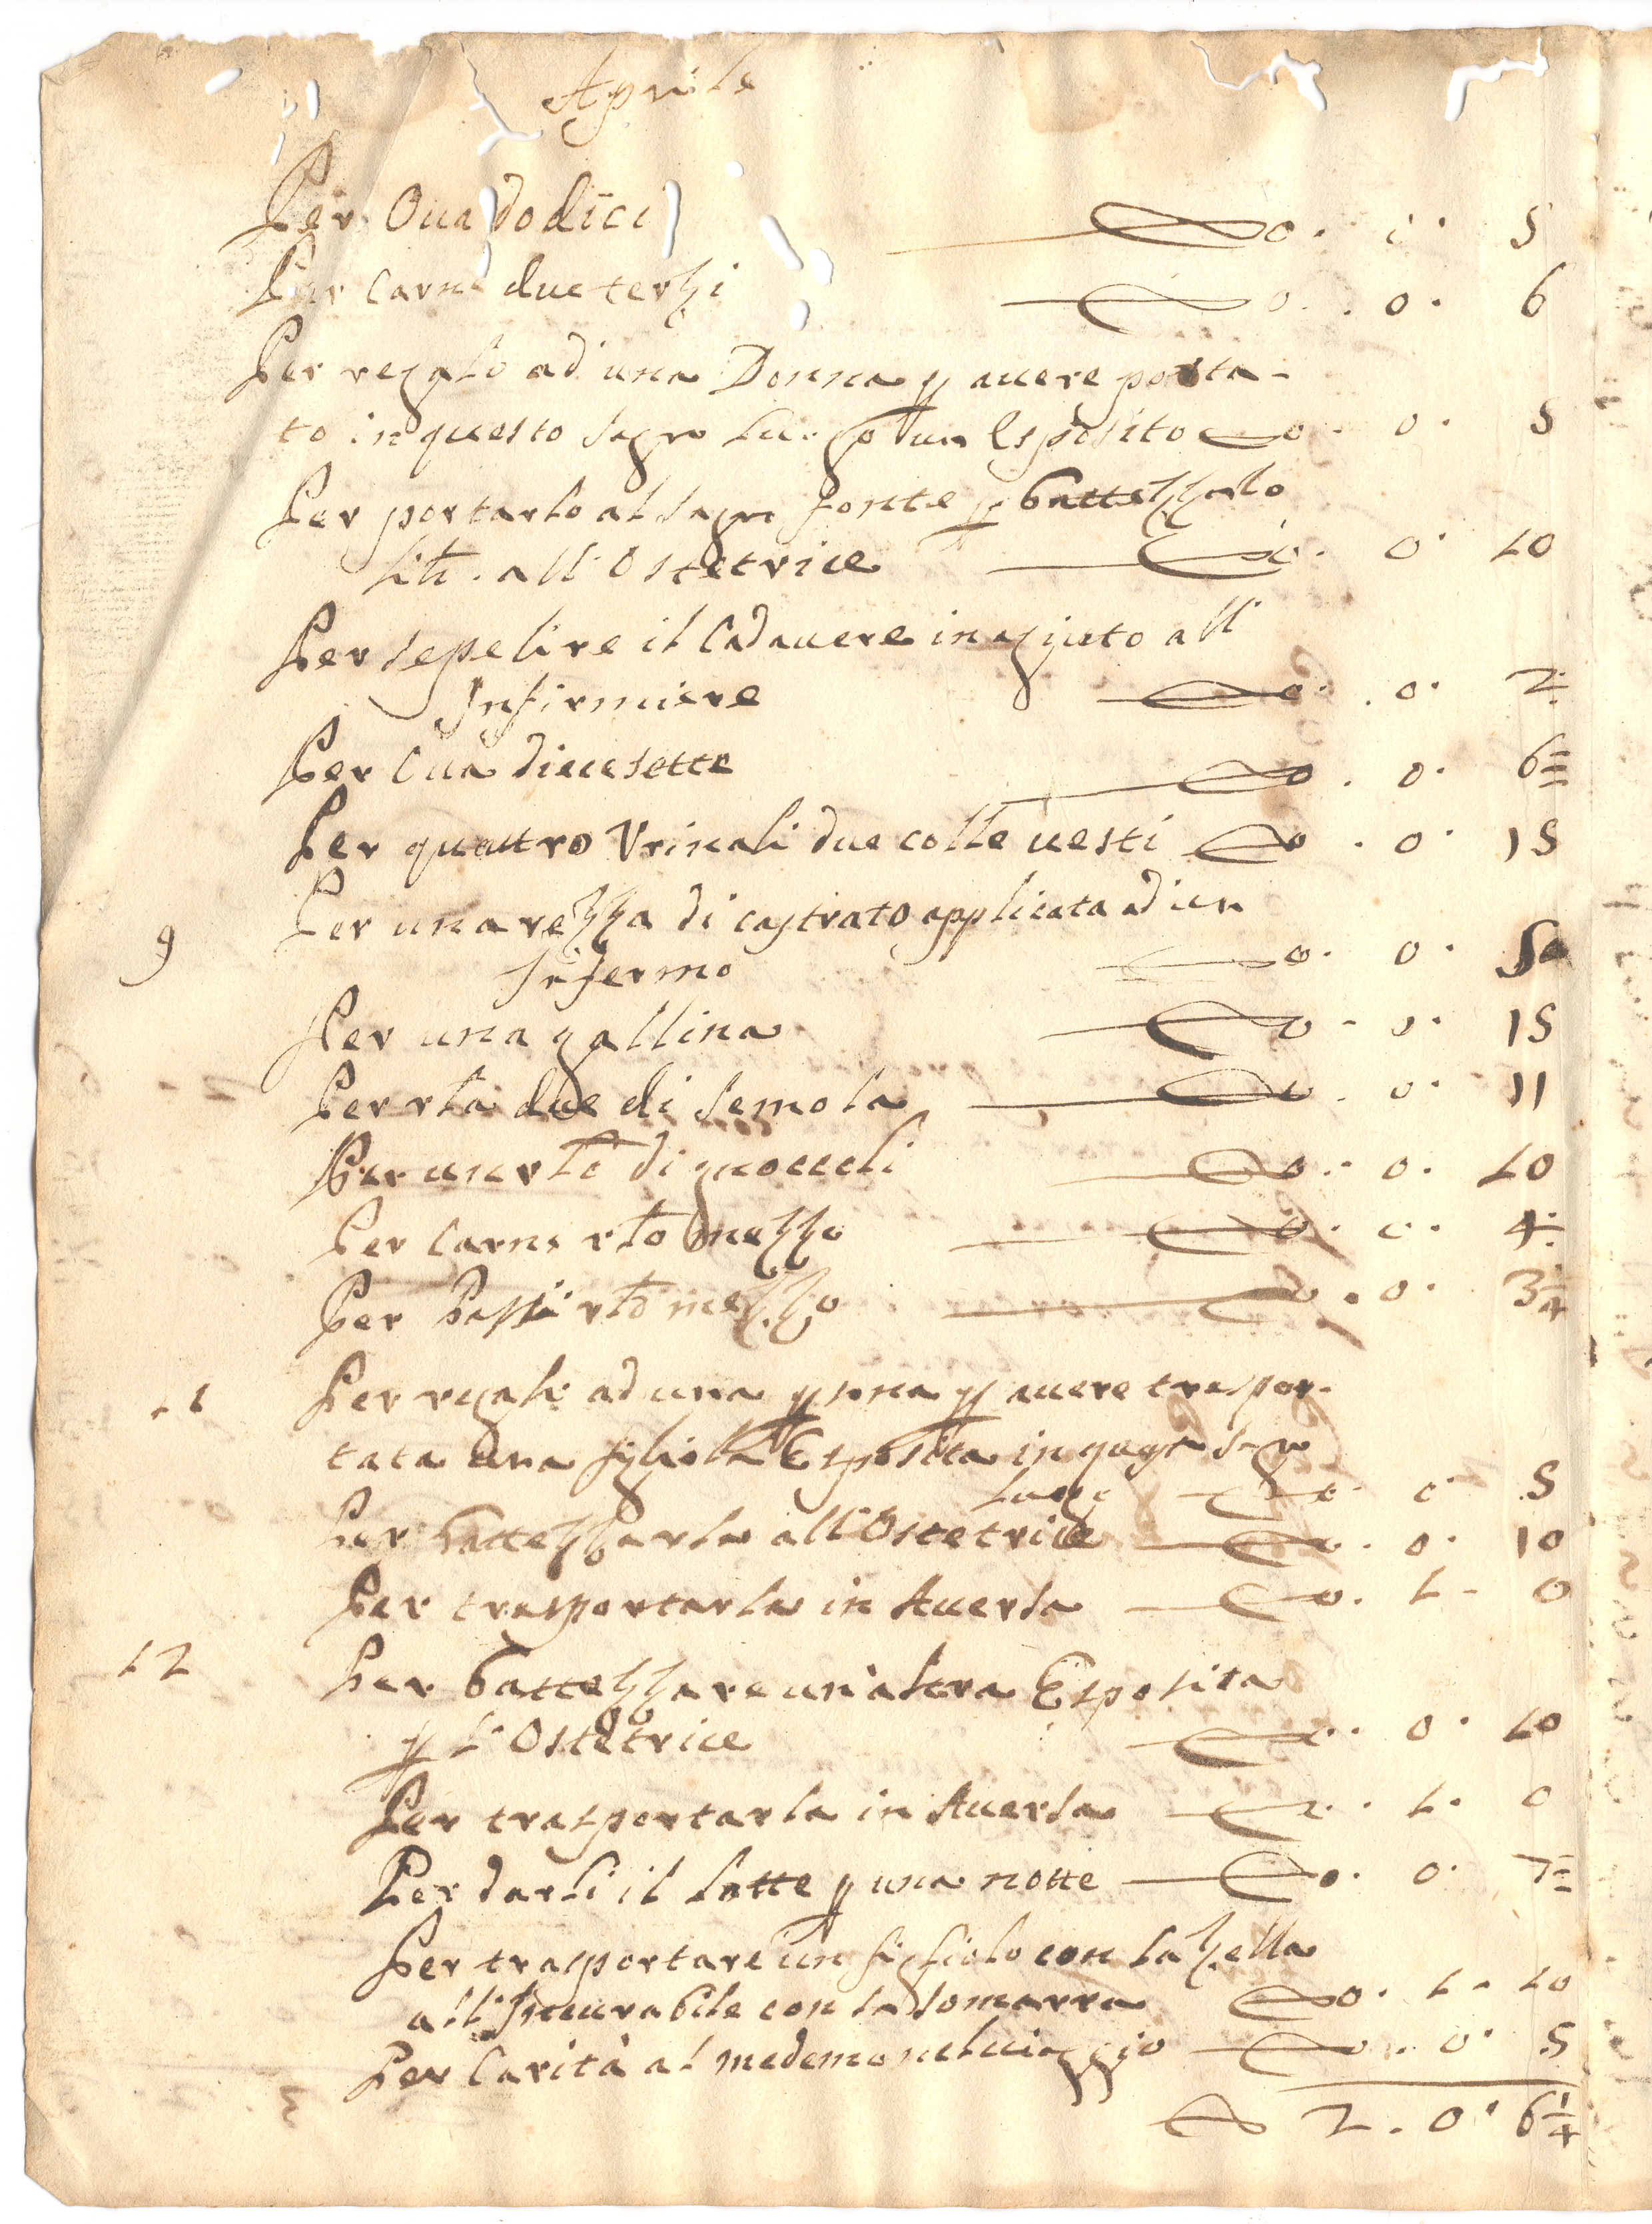 Aprile
Per Oua dodici 0. 1. 5
Per Carne due terzi 0. 0. 6
Per regalo ad una Donna p auere porta-
to in questo Sagro Luogo un Esposito 0. 0. 5
Per portarlo al Sagro fonte p battezzarlo
all'Ostetrice 0. 0. 10
Per sepelire il Cadauere in agiuto all'
Infirmiere 0. 0. 2
Per Oua diecesette 0. 0. 6
Per quattro Vrinali due colle uesti 0. 0. 15
9 Per una rezza di castrato applicata ad un
Infermo 0. 0.
Per una gallina 0. 0. 15
Per rla due di Semola 0. 0. 11
Per un rlo di 0. 0. 10
Per Carne rlo mezzo 0. 0. 4
Per Passi rlo mezzo 0. 0. 3 1/4
11 Per regalo ad una psona p auere traspor-
tata una figliola Esposita in questo Sagro
Luogo 0. 0. 5
Per battezzarla all'Ostetrice 0. 0. 10
Per trasportarla in Auersa 0. 1. 0
12 Per battezzare un'altra Esposita
p l'Ostetrice 0. 0. 10
Per trasportarla in Auersa 0. 1. 0
Per darli il latte p una notte 0. 0. 7
Per trasportare un figliolo con la zella
all'Incurabile con la Somarra 0. 1. 10
Per Carità al medemo nel uiaggio 0. 0. 5
2. 0. 6 1/4